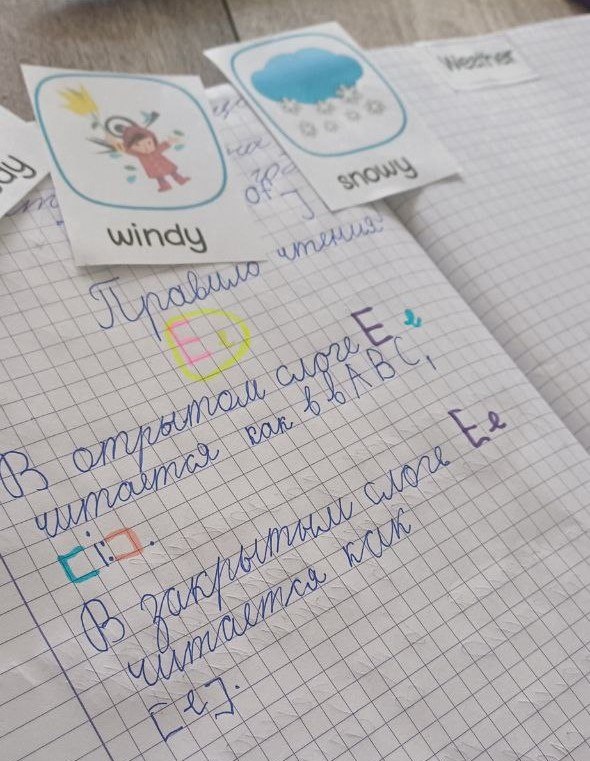 Weather
snowy
windy
Правило чтения
E e
В отрытом слоге E e
читается как в в ABC,
[i:].
В закрытым слоге Ee
читается как
[e].